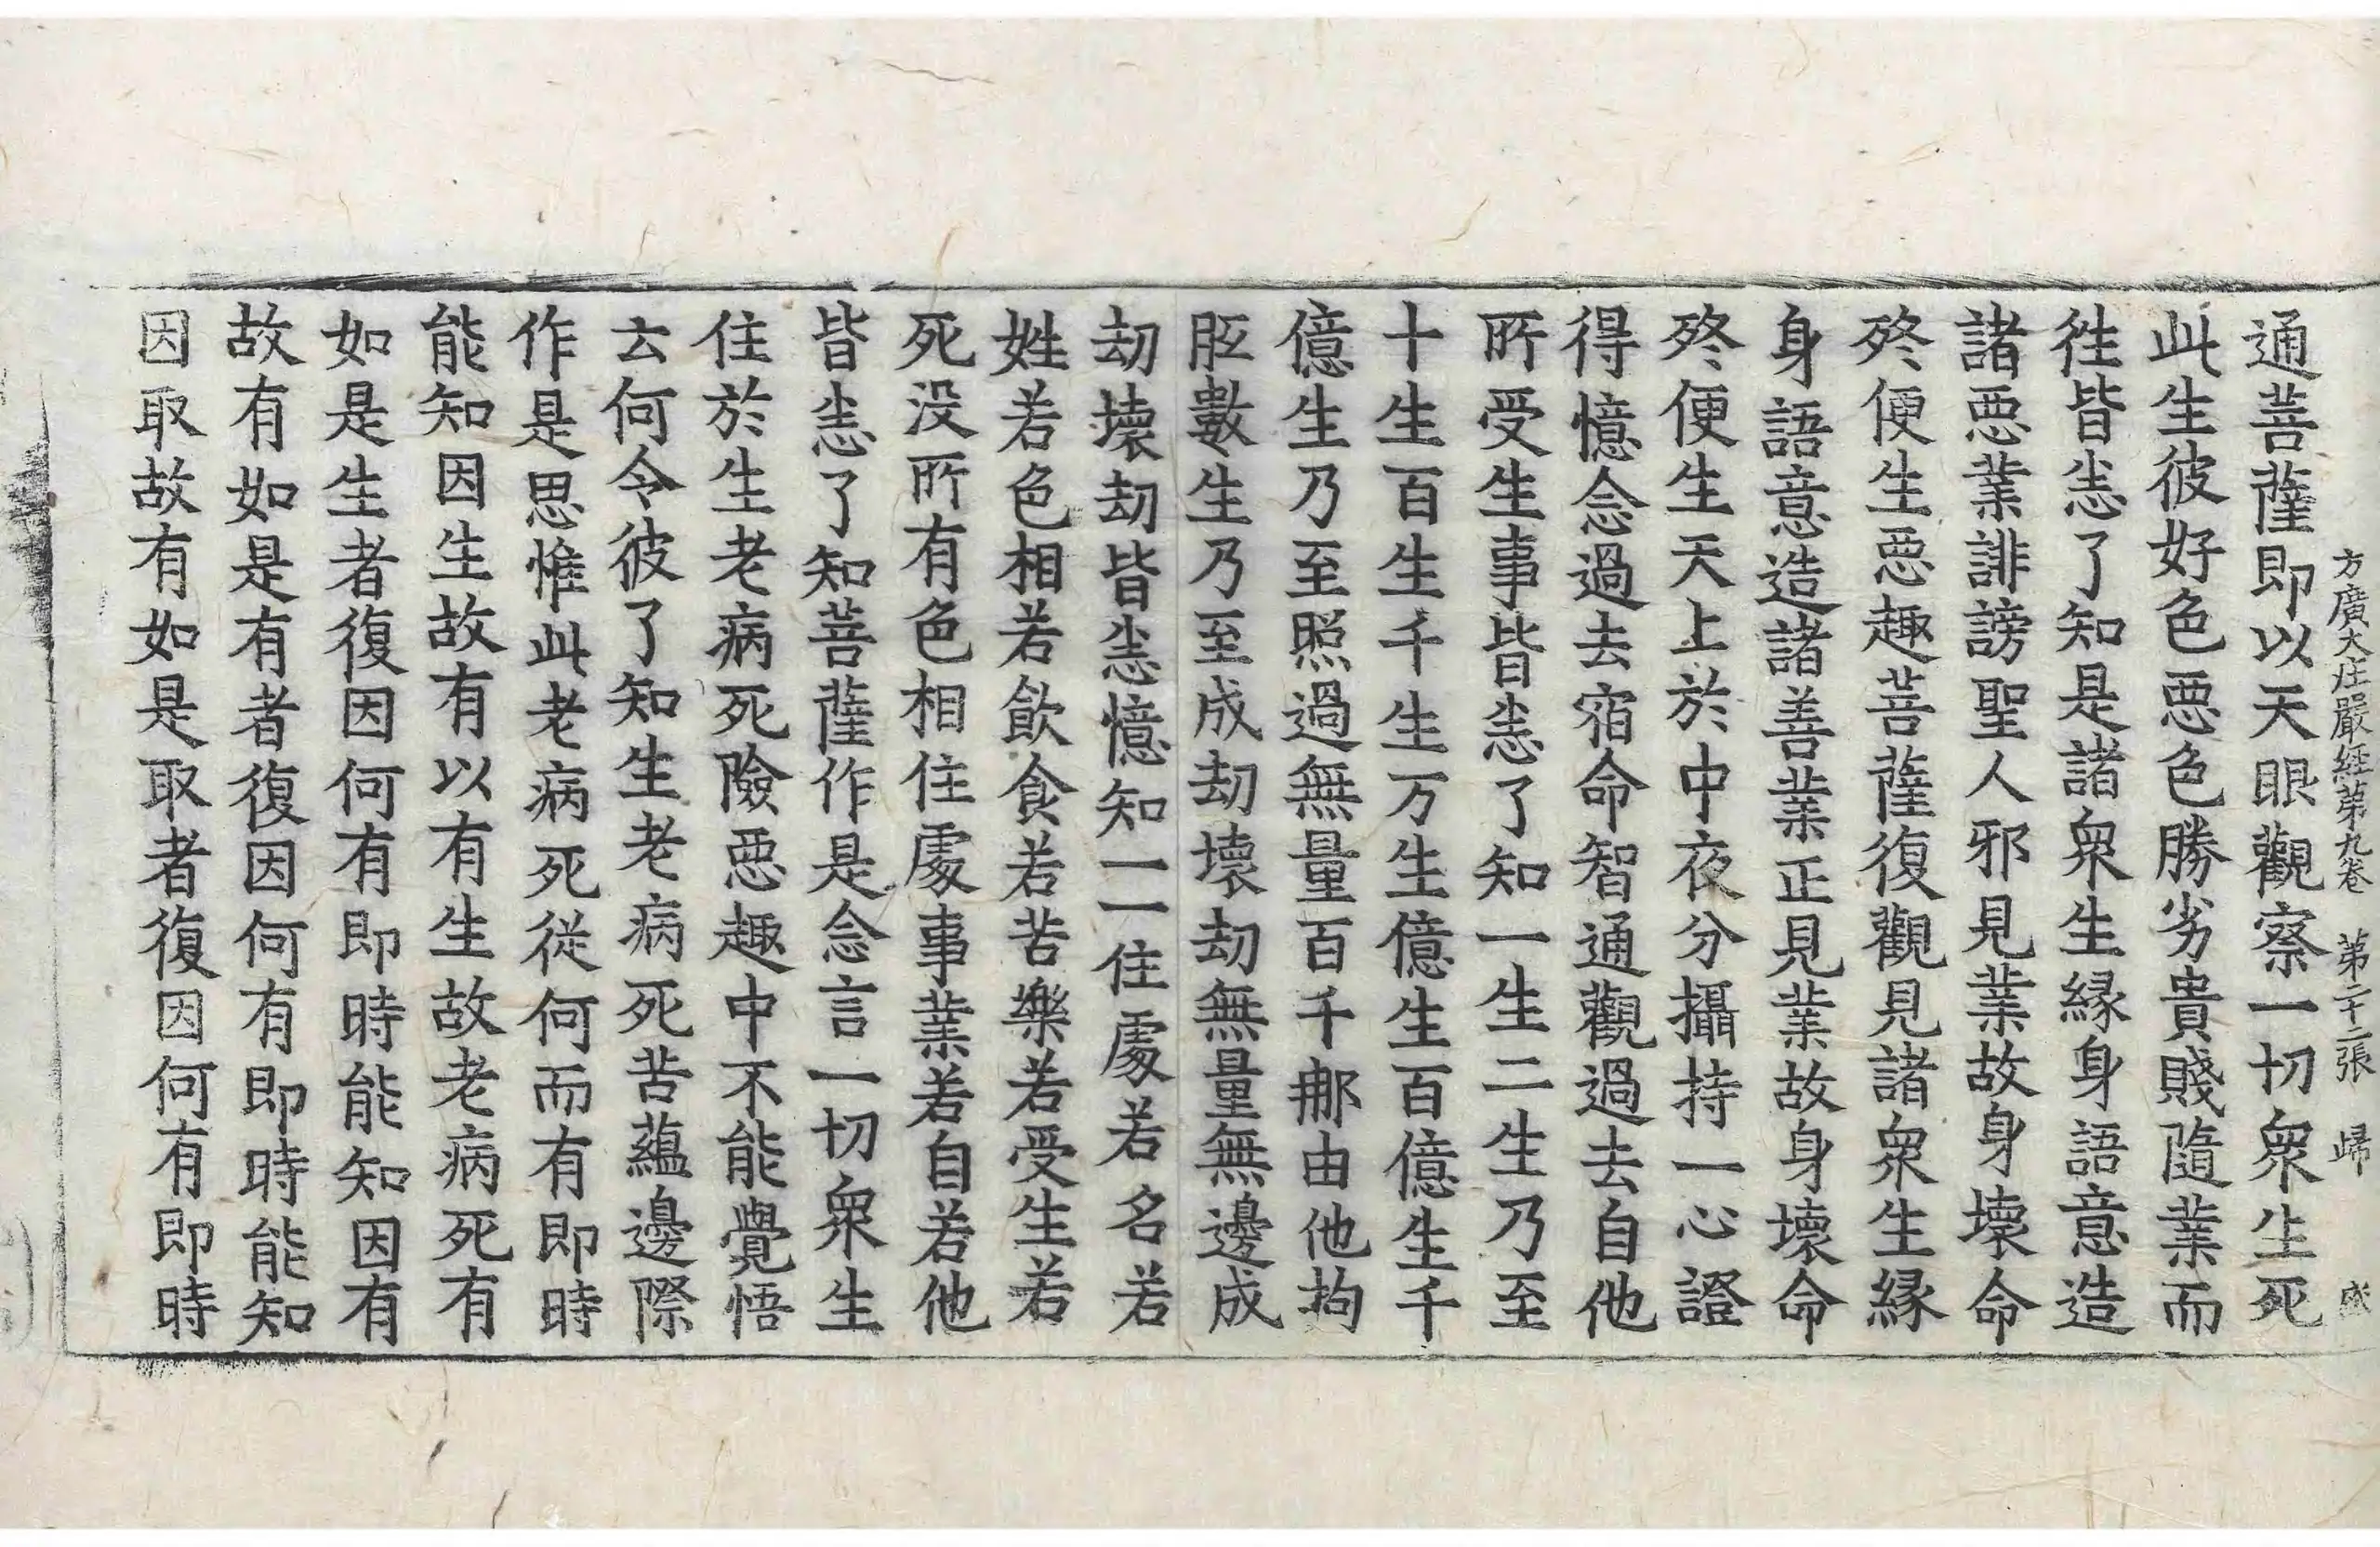 方廣大庄嚴經第九卷 第二十二張 歸
通菩薩即以天眼觀察一切衆生死
此生彼好色惡色勝劣貴賤隨業而
徃皆悉了知是諸衆生緣身語意造
諸惡業誹謗聖人邪見業故身壞命
終便生惡趣菩薩復觀見諸衆生緣
身語意造諸善業正見業故身壞命
終便生天上於中夜分攝持一心證
得憶念過去宿命智通觀過去自他
所受生事皆悉了知一生二生乃至
十生百生千生万生億生百億生千
億生乃至照過無量百千那由他拘
胝數生乃至成劫壞劫無量無邊成
劫壞劫皆悉憶知一一住處若名若
姓若色相若飲食若苦樂若受生若
死没所有色相住處事業若自若他
皆悉了知菩薩作是念言一切衆生
住於生老病死險惡趣中不能覺悟
云何令彼了知生老病死苦蘊邊際
作是思惟此老病死從何而有即時
能知因生故有以有生故老病死有
如是生者復因何有即時能知因有
故有如是有者復因何有即時能知
因取故有如是取者復因何有即時